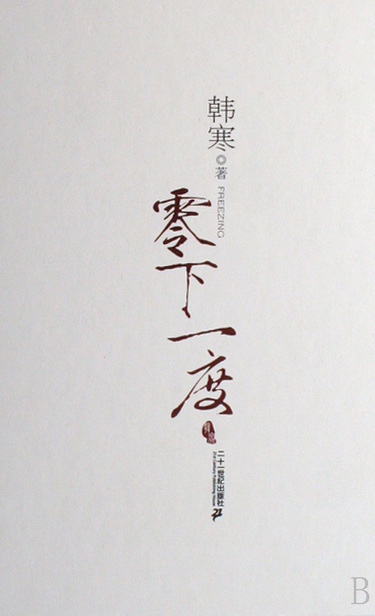 韩寒◎著
FREEZING
零下一度
二十一世纪出版社
21st Century Publishing House
B